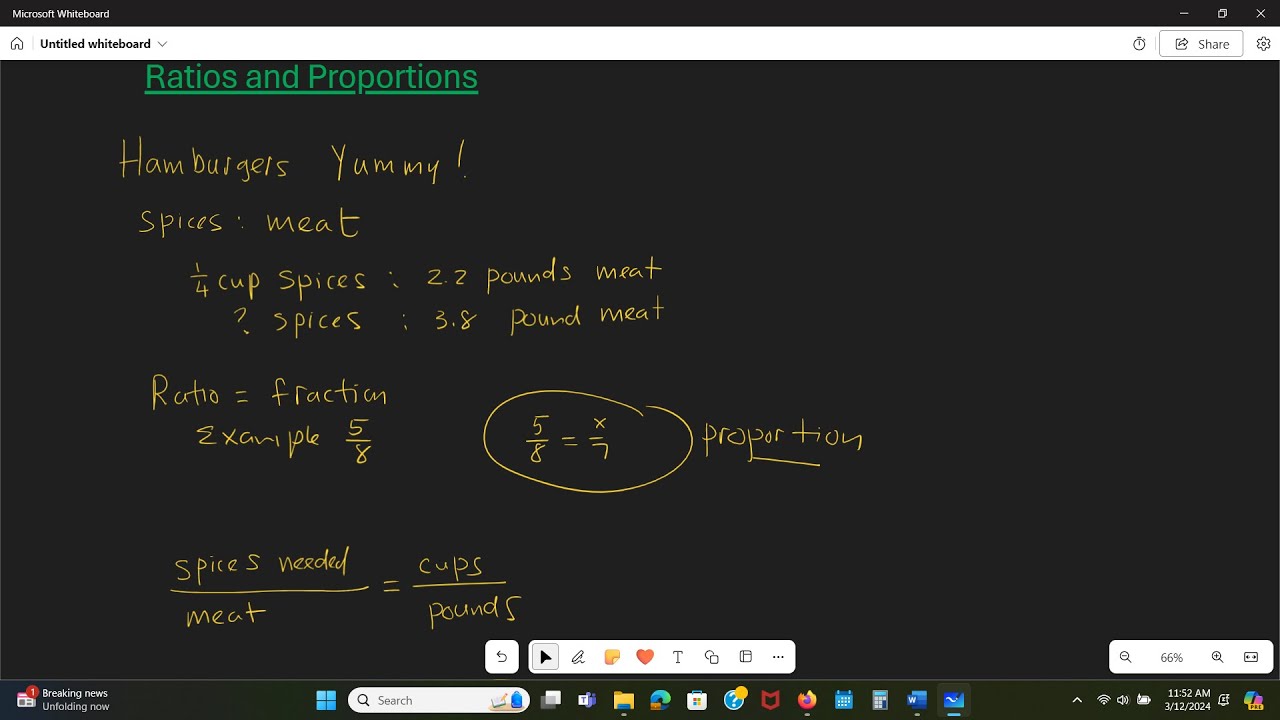 Microsoft Whiteboard
Untitled whiteboard
Share
Ratios and Proportions
Hamburgers Yummy!
Spices: meat
1/4 cup spices : 2.2 pounds meat
? spices : 3.8 pound meat
Ratio = fraction
Example 5/8
5/8 = x/7 proportion
spices needed/meat = cups/pounds
66%
1 Breaking news
Unfolding now
Search
11:52 AM
3/12/2024